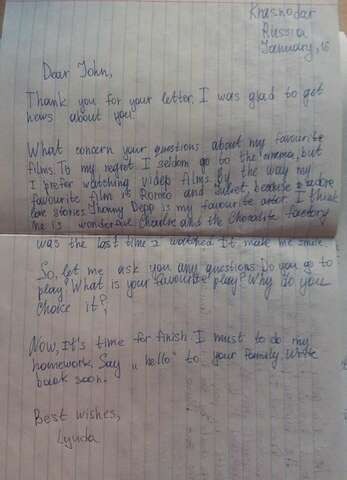 Krasnodar
Russia
January, 16
Dear John,
Thank you for your letter. I was glad to get
news about you.
What concern your questions about my favourite
films. To my regret I seldom go to the cinema, but
I prefer watching video films. By the way my
favourite film is Romeo and Juliet, because I adore
love stories. Jhonny Depp is my favourite actor. I think
he is wonderful. Charlie and the Chocolate factory
was the last time I watched. It make me smile.
So, let me ask you any questions. Do you go to
play? What is your favourite play? Why do you
choice it?
Now, it's time for finish I must to do my
homework. Say „hello" to your family. Write
back soon.
Best wishes,
Lynda